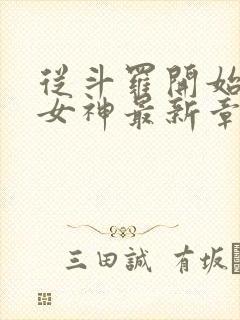 從斗羅開始
女神最新章
三田誠 有坂